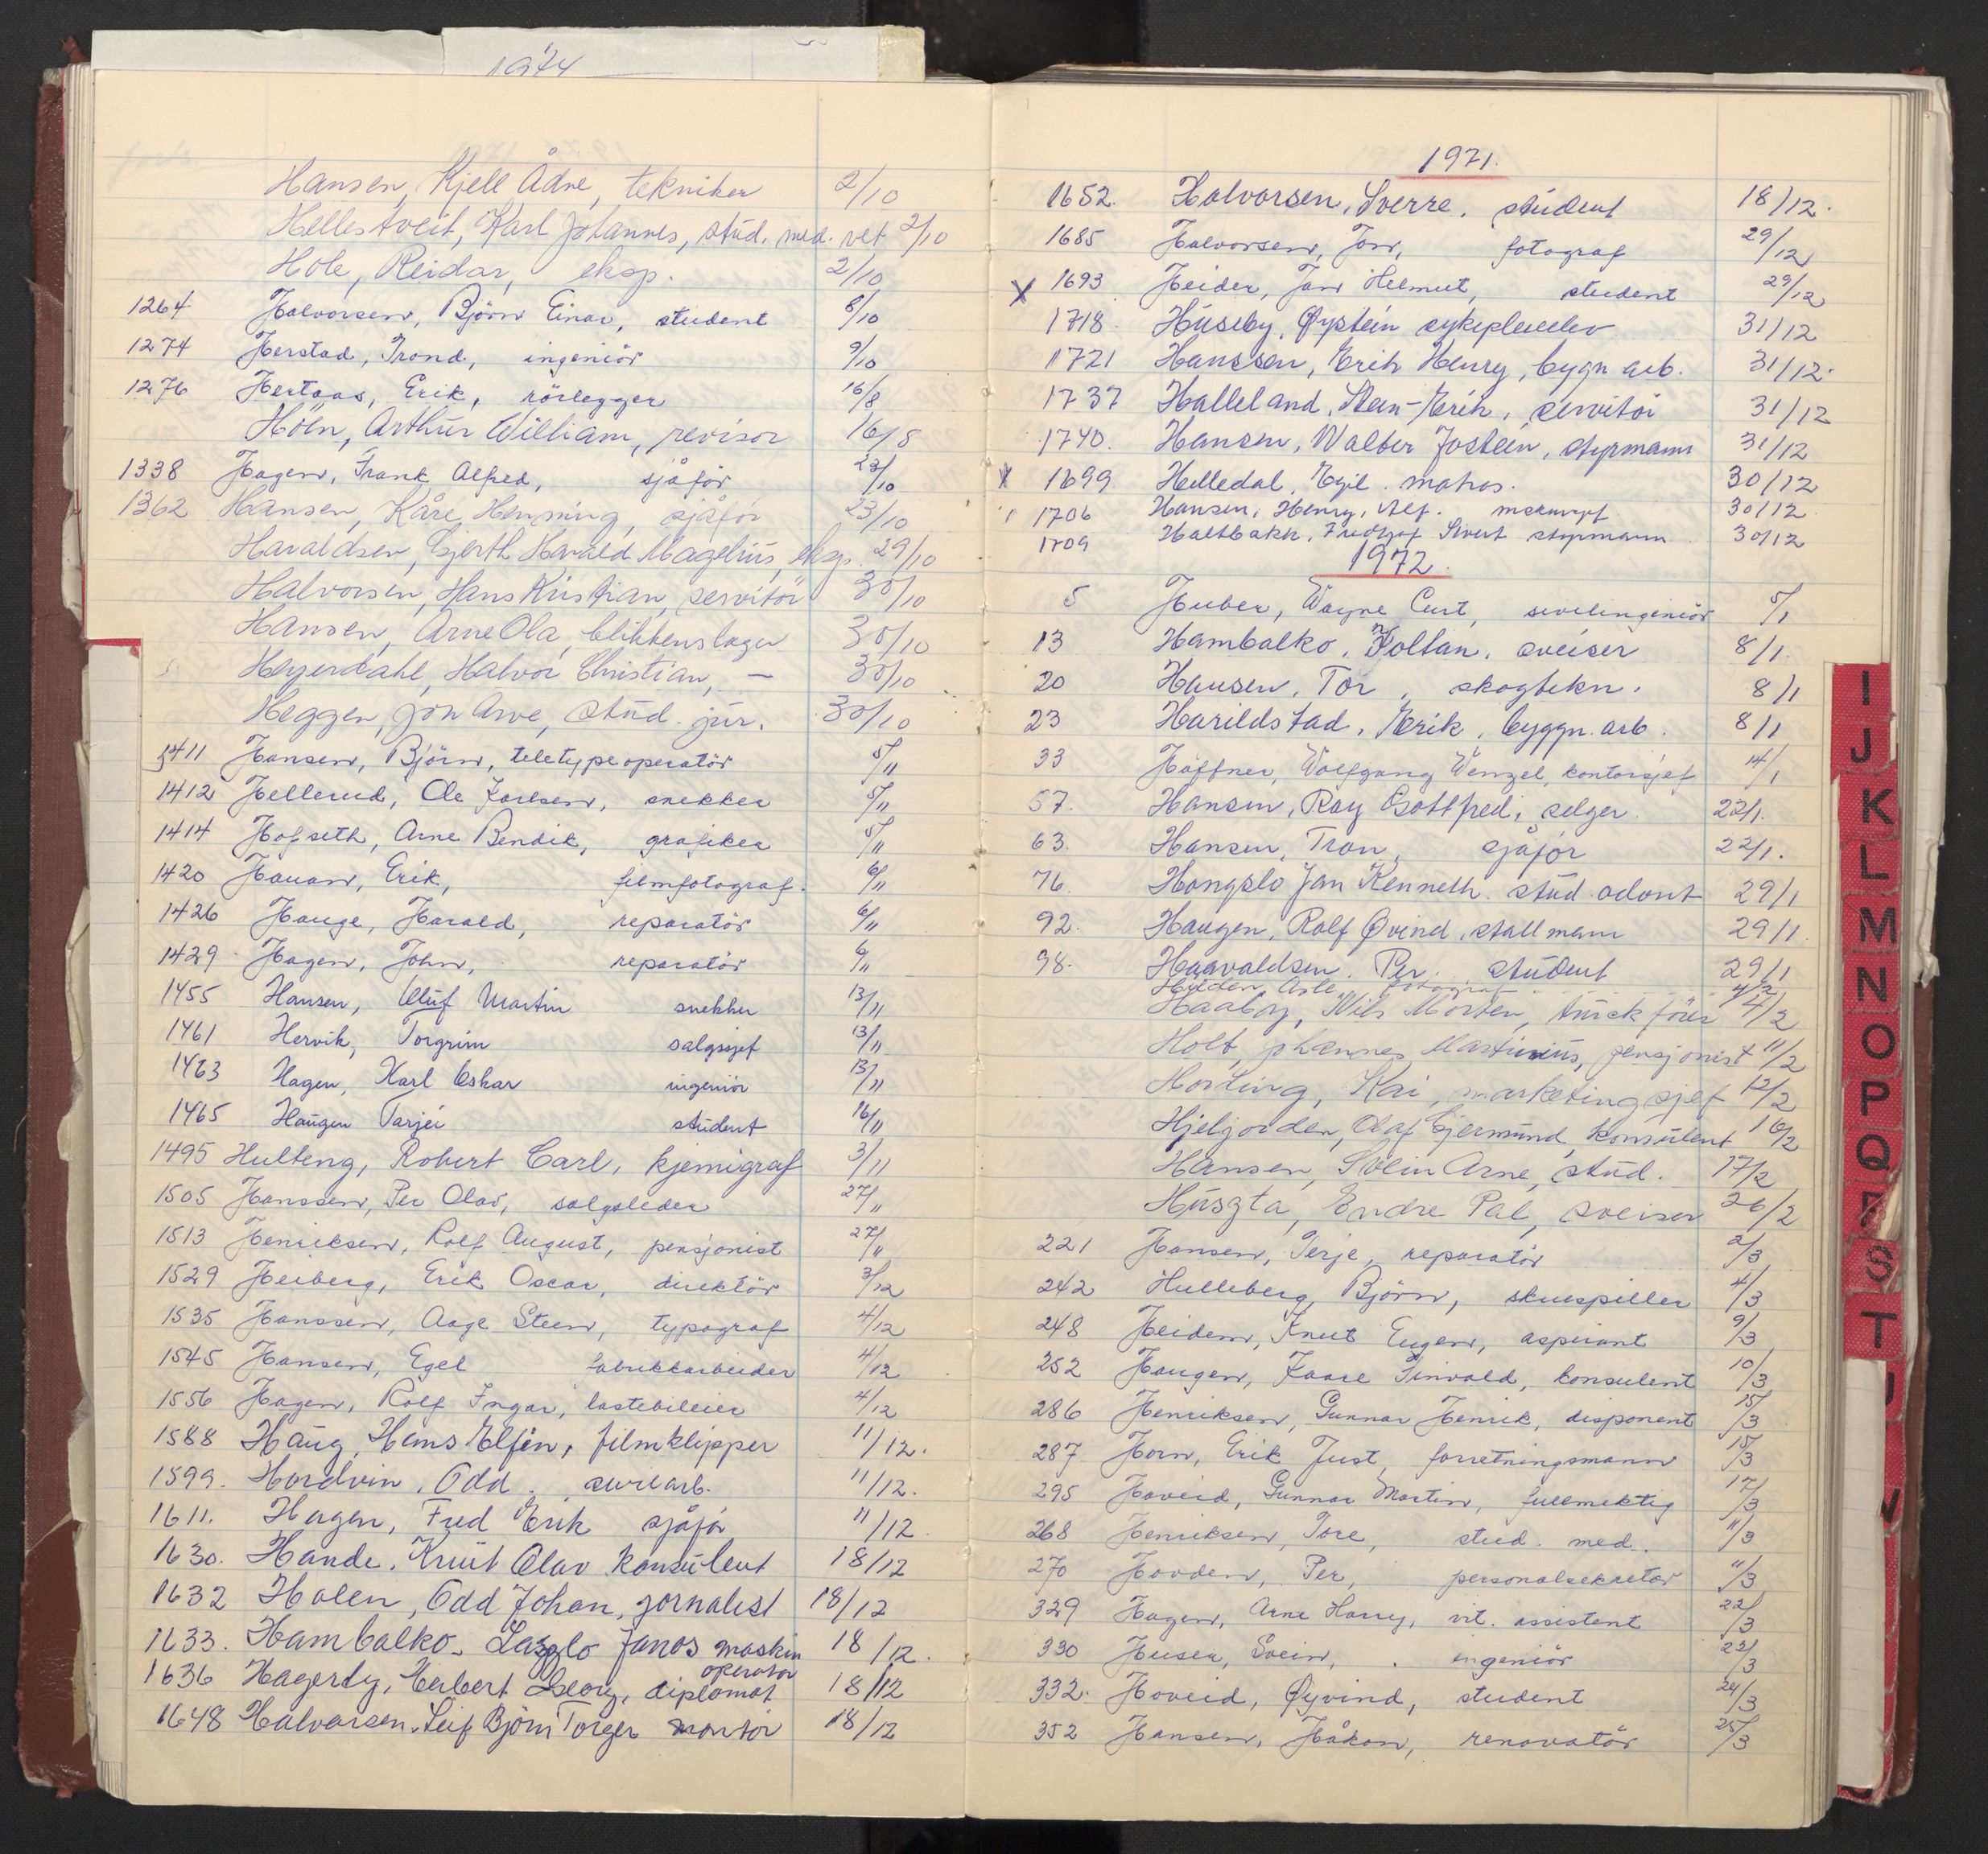 1974
Hansen, Kjell Ådne, tekniker 2/10
Hellestveit, Karl Johannes, stud. med. vet 2/10
Hole, Reidar, eksp. 2/10
1264 Halvorsen, Björn Einar, student 8/10
1274 Herstad, Trond, ingeniör 9/10
1276 Hertaas, Erik, rörlegger 16/8
Höln, Arthur William, revisor 16/8
1338 Hagen, Frank Alfred, sjåför 23/10
1362 Hansen, Kåre Henning, sjåför 23/10
Haraldsen, Gjerth Harald Magelius, eksp. 29/10
Halvorsen, Hans Kristian, servitör 30/10
Hansen, Arne Ola, blikkenslager 30/10
Heyerdahl, Halvor Christian, — 30/10
Heggen, Jon Arve, stud. jur. 30/10
1411 Hansen, Björn, teletypeoperatör 5/11
1412 Hellerud, Ole Karlsen, snekker 5/11
1414 Hofseth, Arne Bendik, grafiker 5/11
1420 Hauan, Erik, filmfotograf. 6/11
1426 Hauge, Harald, reparatör 6/11
1429 Hagen, John, reparatör 6/11
1455 Hansen, Oluf Martin snekker 13/11
1461 Hervik, Torgrim salgssjef 13/11
1463 Hagen, Karl Oskar ingeniör 13/11
1465 Haugen Tarjei student 16/11
1495 Hulteng, Robert Carl, kjemigraf 3/11
1505 Hanssen, Per Olav, salgsleder 27/11
1513 Henriksen, Rolf August, pensjonist 27/11
1529 Heiberg, Erik Oscar, direktör 3/12
1535 Hanssen, Aage Steen, typograf 4/12
1545 Hansen, Egel fabrikkarbeider 4/12
1556 Hagen, Rolf Ingar, lastebileier 4/12
1588 Haug, Hans Elfin, filmklipper 11/12.
1599. Hordvin, Odd. sivilarb. 11/12.
1611. Hagen, Fred Erik sjåför 11/12.
1630. Hande, Knut Olav konsulent 18/12
1632 Holen, Odd Johan, jornalist 18/12
1633. Hambalko, Laszlo Janos maskin 18/12.
operatör
1636 Hagerty, Herbert Georg, diplomat 18/12
1648 Halvorsen, Leif Björn Torger montör 18/12
1971.
1652. Halvorsen, Sverre, student 18/12.
1685 Halvorsen, Jon, fotograf 29/12
X 1693 Heider, Jan Helmut, student 29/12
1718. Huseby, Øystein sykepleielev 31/12
1721 Hanssen, Erik Henry, bygn arb. 31/12.
1737 Halleland, Sten-Erik, servitör 31/12
1740. Hansen, Walter Jostein, styrmann 31/12
X 1699 Helledal, Egil. matros. 30/12
1706 Hansen, Henry, Alf. 30/12
1709 Haltbakk, Fridtjof Sivert styrmann 30/12
1972.
5 Huber, Wayne Curt, sivilingeniör 5/1
13 Hambalko, Zoltan, sveiser 8/1
20 Hansen, Tor, skogtekn. 8/1
23 Harildstad, Erik, byggn. arb. 8/1
33 Höffner, Wolfgang Wenzel, kontorsjef 14/1
57. Hansen, Roy Gottfred, selger 22/1.
63. Hansen, Tron, sjåför 22/1.
76. Hongslo Jan Kenneth. stud. odont 29/1
92. Haugen, Ralf Øvind, stallmann 29/1
98. Haavaldsen. Per. student 29/1
Hilden, Asle, fotograf 4/2
Haaby, Nils Morten, truckförer 4/2
Holt, Johannes Martinius, pensjonist 11/2
Horting, Kai, marketingsjef 12/2
Hjelgorden, Olaf Gjermund, konsulent 16/2
Hansen, Svein Arne, stud. 17/2
Huszta, Endre Pal, sveiser 26/2
221 Hansen, Terje, reparatör 2/3
242 Hulleberg, Björn, skuespiller 4/3
248 Heiden, Knut Eugen, aspirant 9/3
252 Haugen, Kaare Tinvald, konsulent 10/3
286 Henriksen, Gunnar Henrik, disponent 15/3
287 Horn, Erik Just, forretningsmann 15/3
295 Hoveid, Gunnar Martin, fullmektig 17/3
268 Henriksen, Tore, stud. med. 11/3
270 Hovden, Per, personalsekretær 11/3
329 Hagen, Arne Harry, vit. assistent 22/3
330 Huser, Svein, ingeniör 22/3
332. Hoveid, Øyvind, student 24/3
352 Hansen, Håkon, renovatör 25/3
I
J
K
L
M
N
O
P
Q
R
S
T